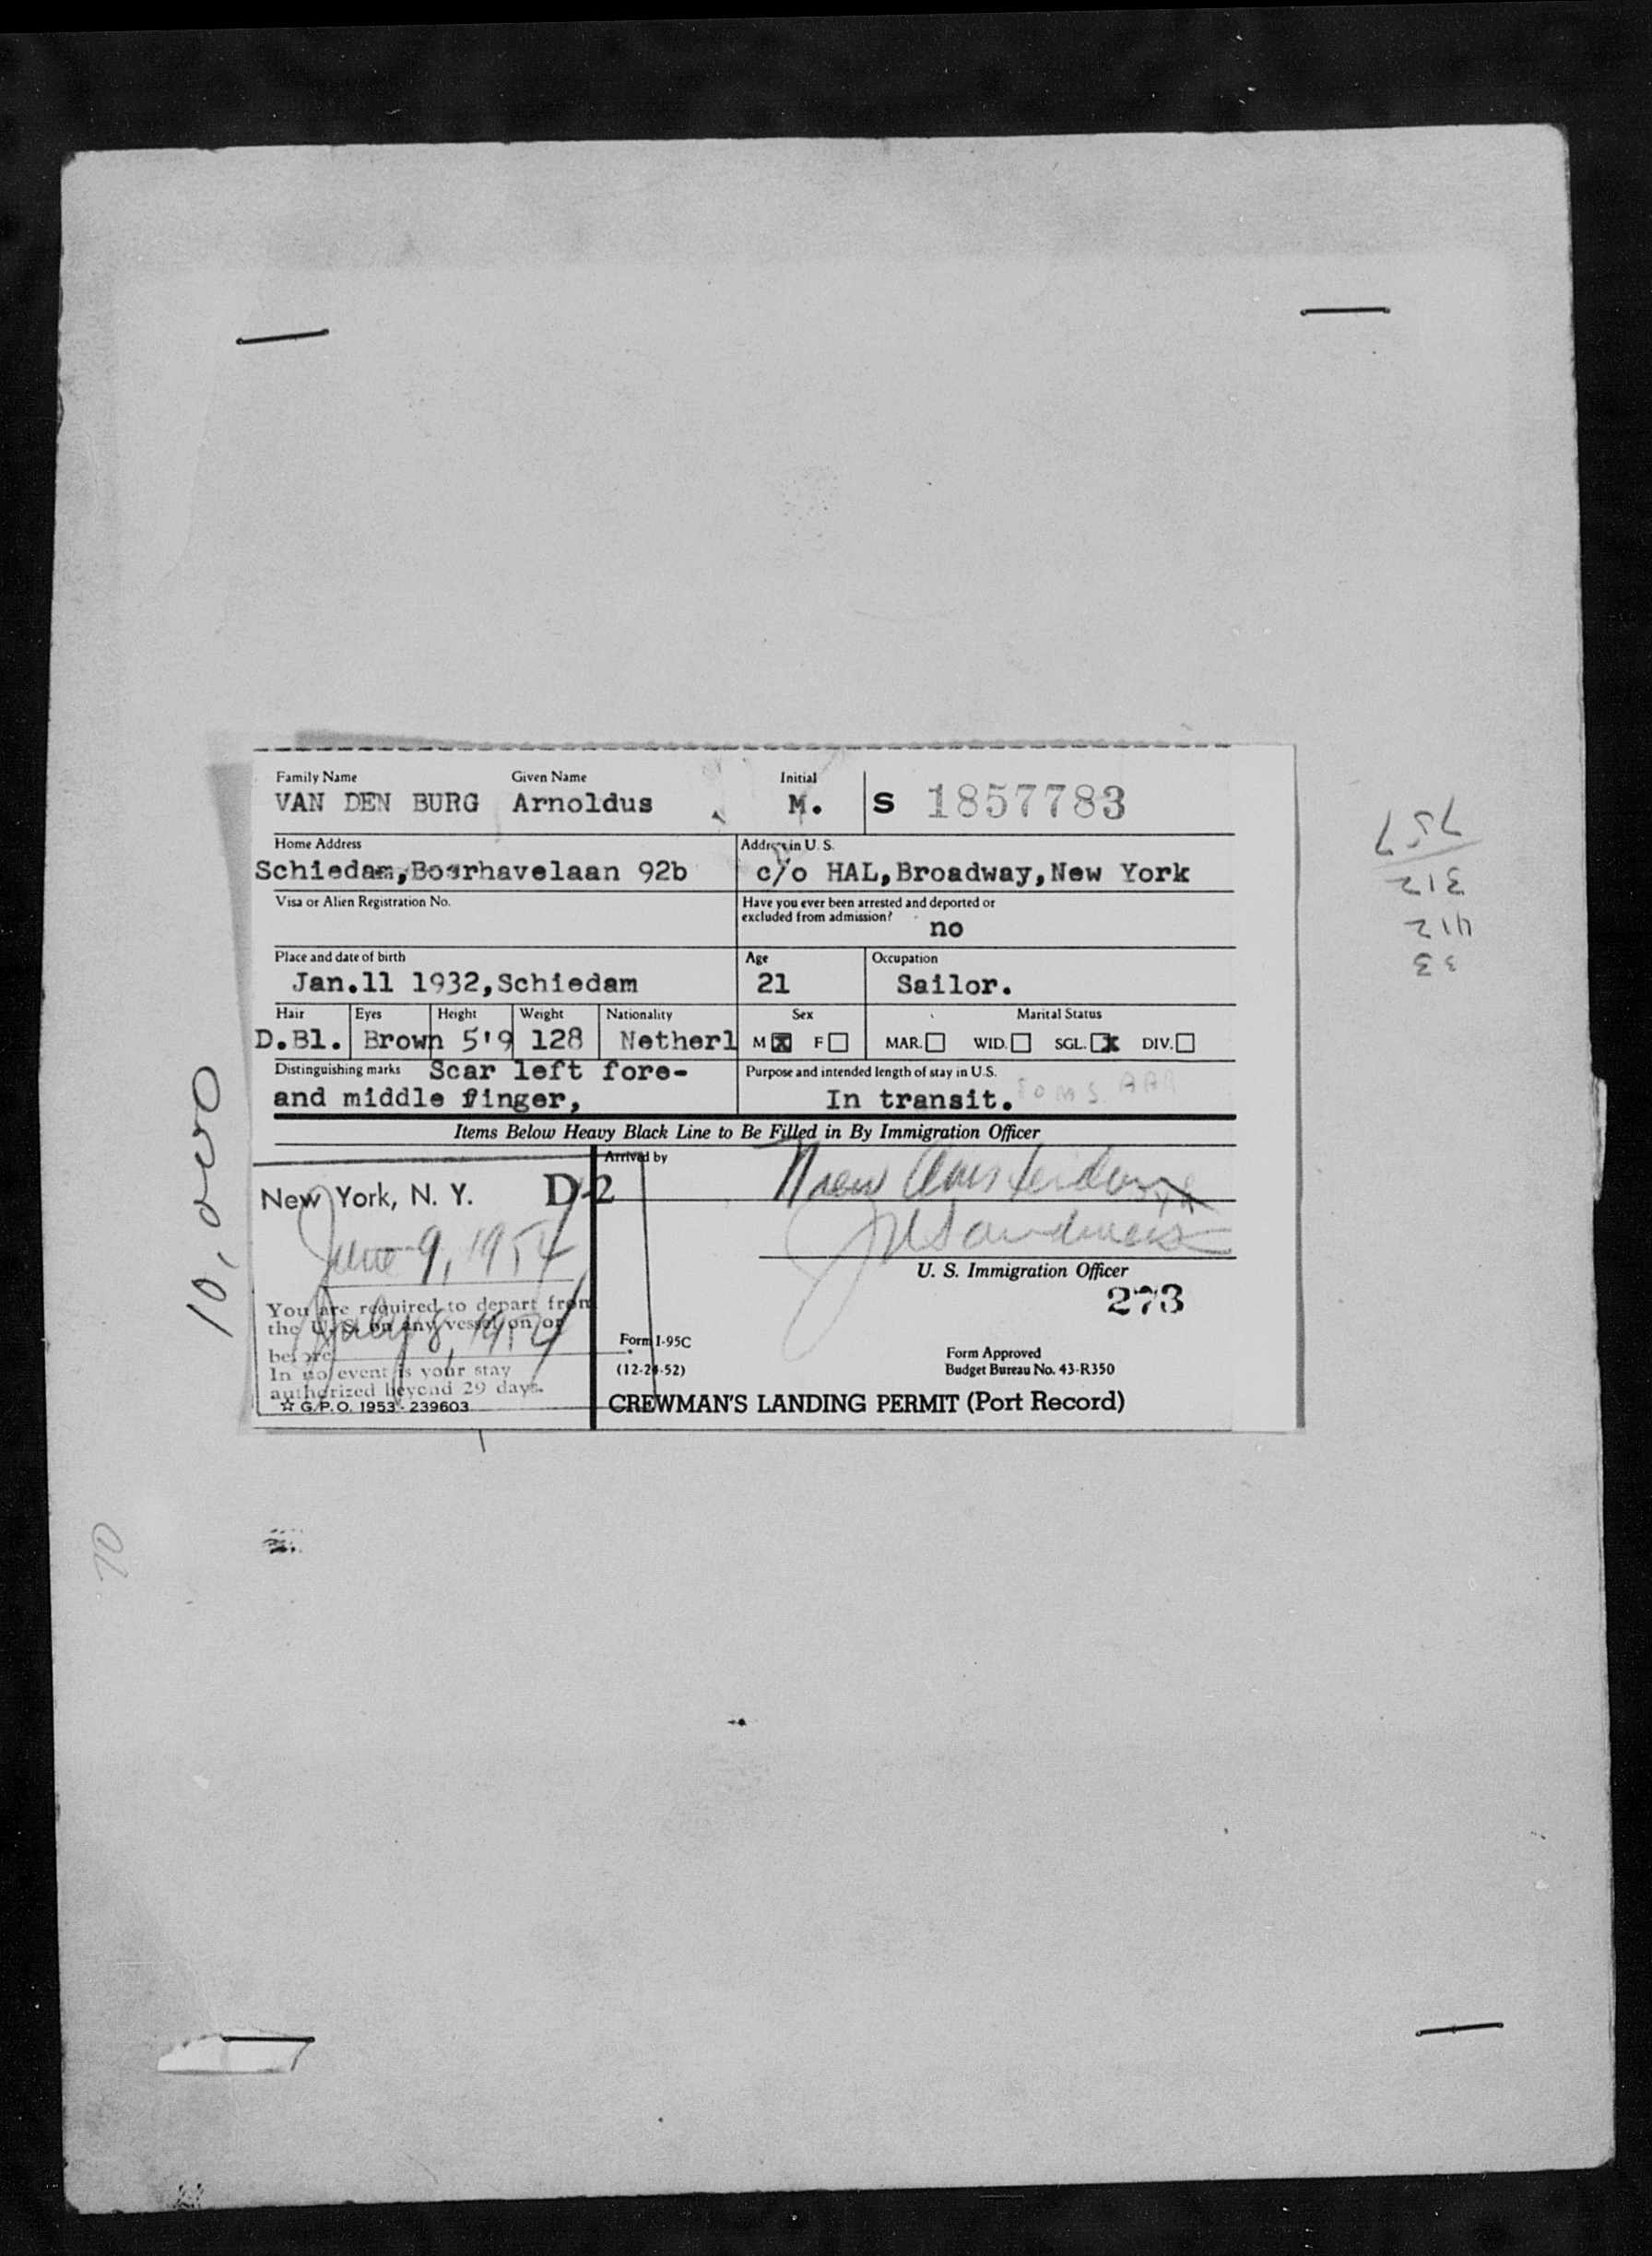 Family Name Given Name Initial
VAN DEN BURG Arnoldus M. S 1857783
Home Address Address in U. S.
Schiedam, Boerhavelaan 92b c/o HAL, Broadway, New York
Visa or Alien Registration No. Have you ever been arrested and deported or
excluded from admission? no
Place and date of birth Age Occupation
Jan.11 1932, Schiedam 21 Sailor.
Hair Eyes Height Weight Nationality Sex Marital Status
D.Bl. Brown 5'9 128 Netherl M X F MAR. WID. SGL. X DIV.
Distinguishing marks Scar left fore- Purpose and intended length of stay in U.S.
and middle finger, In transit.
Items Below Heavy Black Line to Be Filled in By Immigration Officer
Arrived by Nieuw Amsterdam
New York, N. Y. D-2
June 9, 1954
U. S. Immigration Officer
273
You are required to depart from
the U. S. on any vessel on or
before July 8, 1954
In no event is your stay
authorized beyond 29 days.
☆ G.P.O. 1953 - 239603
Form I-95C
(12-24-52)
Form Approved
Budget Bureau No. 43-R350
CREWMAN'S LANDING PERMIT (Port Record)
10,000
70
33
412
312
757